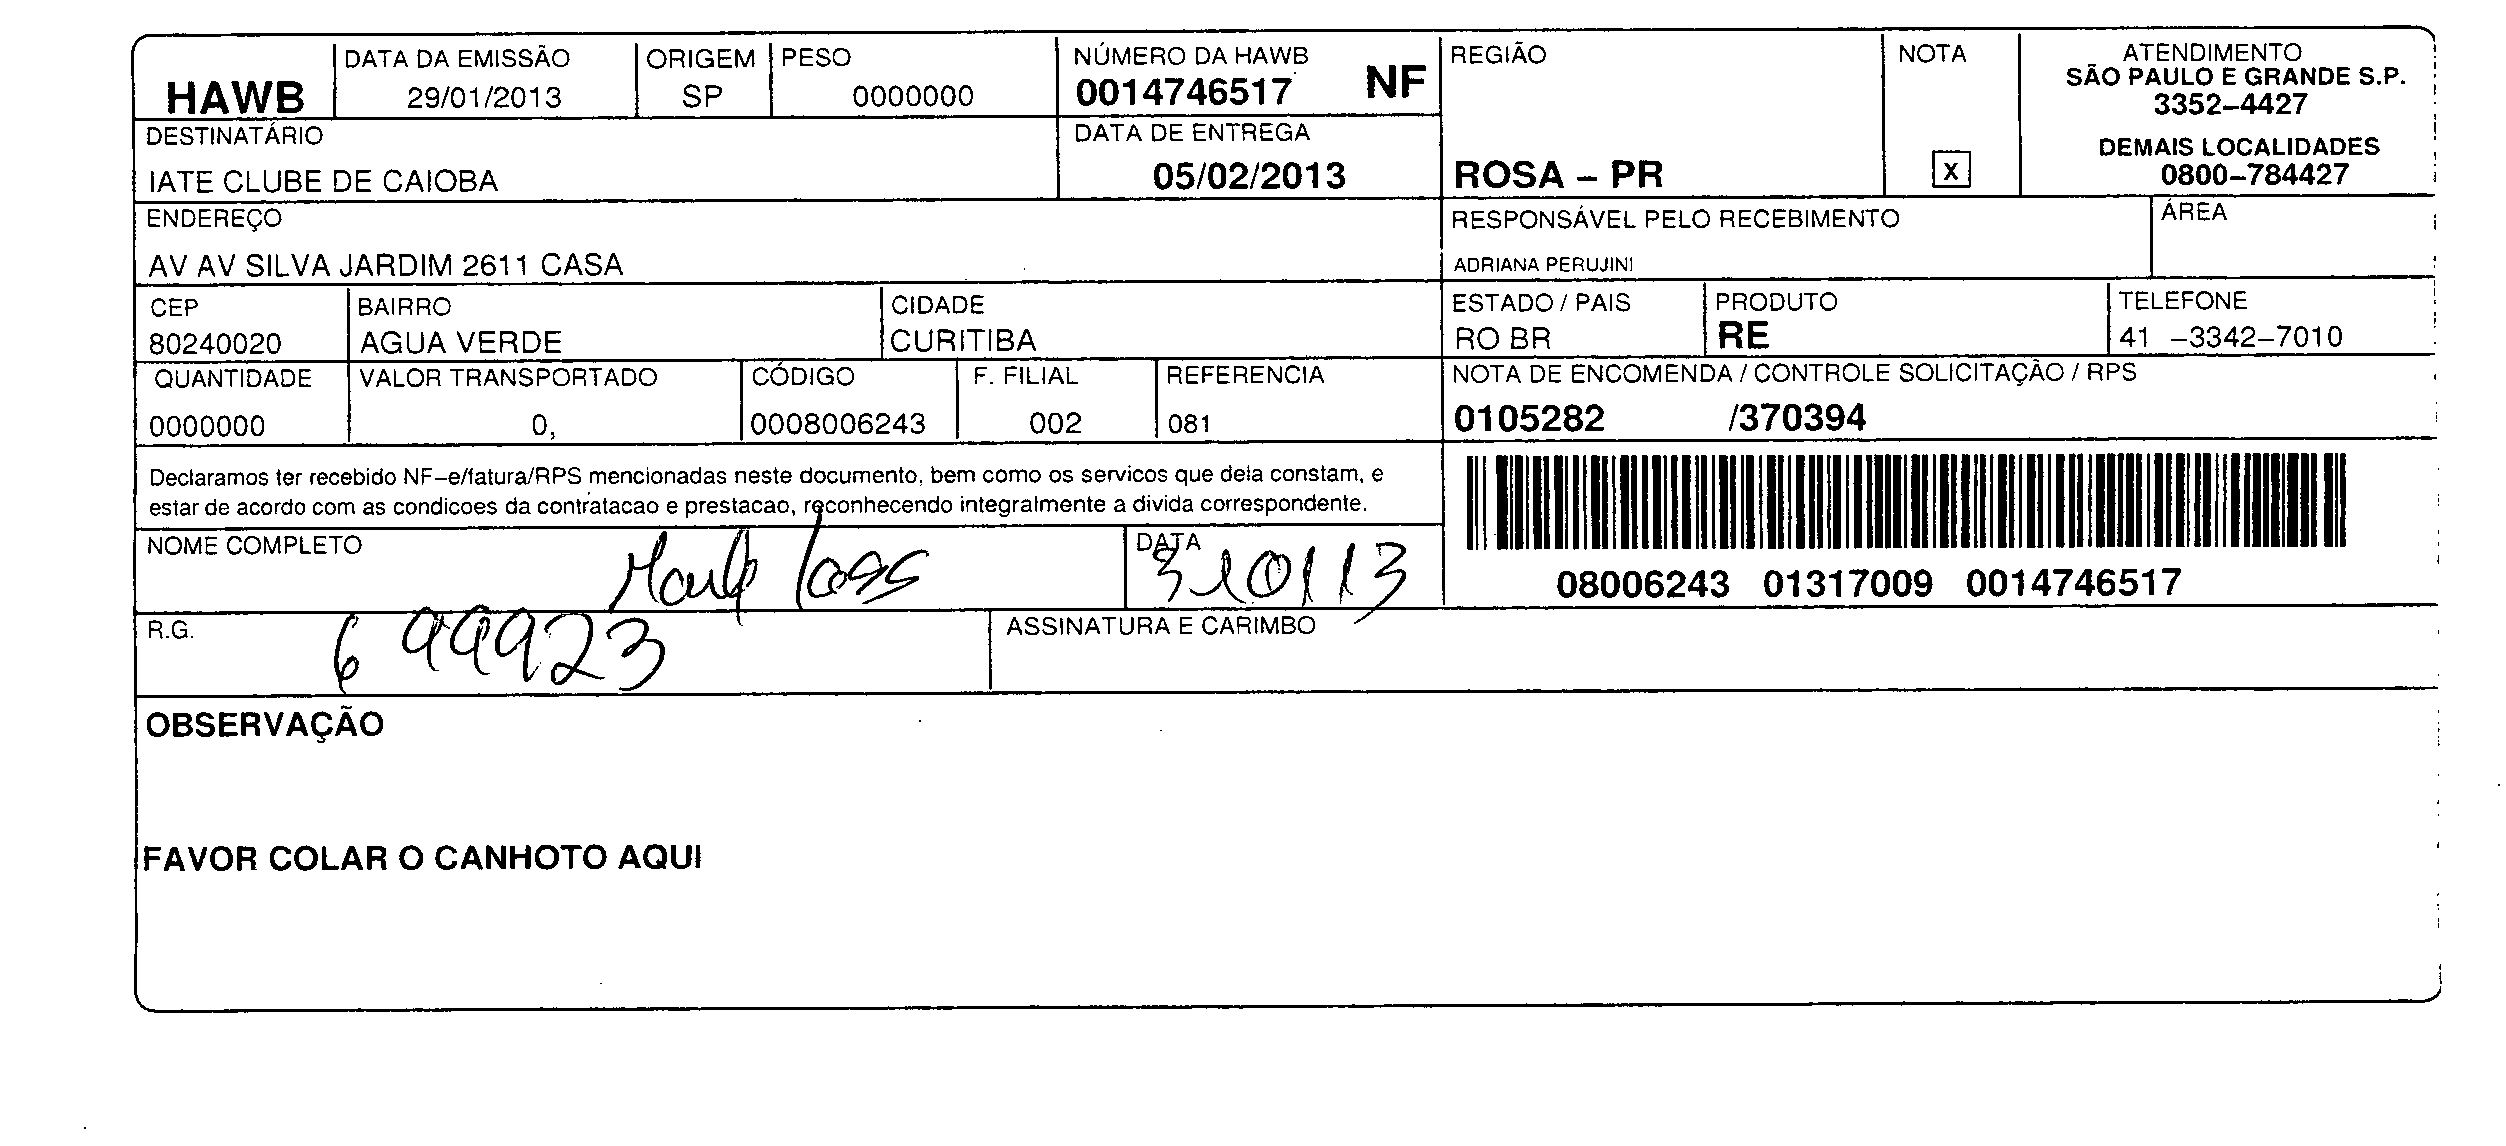 HAWB
DATA DA EMISSÃO
29/01/2013
ORIGEM
SP
PESO
0000000
NÚMERO DA HAWB
0014746517 NF
REGIÃO
ROSA – PR
NOTA
X
ATENDIMENTO
SÃO PAULO E GRANDE S.P.
3352–4427
DEMAIS LOCALIDADES
0800–784427
DESTINATÁRIO
IATE CLUBE DE CAIOBA
DATA DE ENTREGA
05/02/2013
ENDEREÇO
AV AV SILVA JARDIM 2611 CASA
RESPONSÁVEL PELO RECEBIMENTO
ADRIANA PERUJINI
ÁREA
CEP
80240020
BAIRRO
AGUA VERDE
CIDADE
CURITIBA
ESTADO / PAIS
RO BR
PRODUTO
RE
TELEFONE
41 –3342–7010
QUANTIDADE
0000000
VALOR TRANSPORTADO
0,
CÓDIGO
0008006243
F. FILIAL
002
REFERENCIA
081
NOTA DE ENCOMENDA / CONTROLE SOLICITAÇÃO / RPS
0105282 /370394
Declaramos ter recebido NF–e/fatura/RPS mencionadas neste documento, bem como os servicos que dela constam, e
estar de acordo com as condicoes da contratacao e prestacao, reconhecendo integralmente a divida correspondente.
08006243 01317009 0014746517
NOME COMPLETO
DATA
310113
R.G.
6 999923
ASSINATURA E CARIMBO
OBSERVAÇÃO
FAVOR COLAR O CANHOTO AQUI